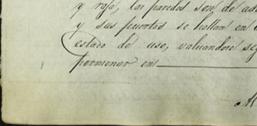 y rojo, las paredes son de ad
y sus puertas se hallan en
estado de uso, valuandose se
pormenor en